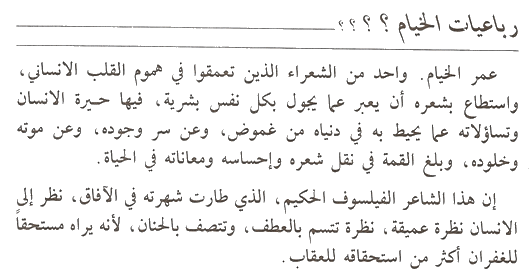 رباعيات الخيام ؟ ؟ ؟؟
عمر الخيام. واحد من الشعراء الذين تعمقوا في هموم القلب الانساني،
واستطاع بشعره أن يعبر عما يجول بكل نفس بشرية، فيها حيرة الانسان
وتساؤلاته عما يحيط به في دنياه من غموض، وعن سر وجوده، وعن موته
وخلوده، وبلغ القمة في نقل شعره وإحساسه ومعاناته في الحياة.
إن هذا الشاعر الفيلسوف الحكيم، الذي طارت شهرته في الآفاق، نظر إلى
الانسان نظرة عميقة، نظرة تتسم بالعطف، وتتصف بالحنان، لأنه يراه مستحقاً
للغفران أكثر من استحقاقه للعقاب.